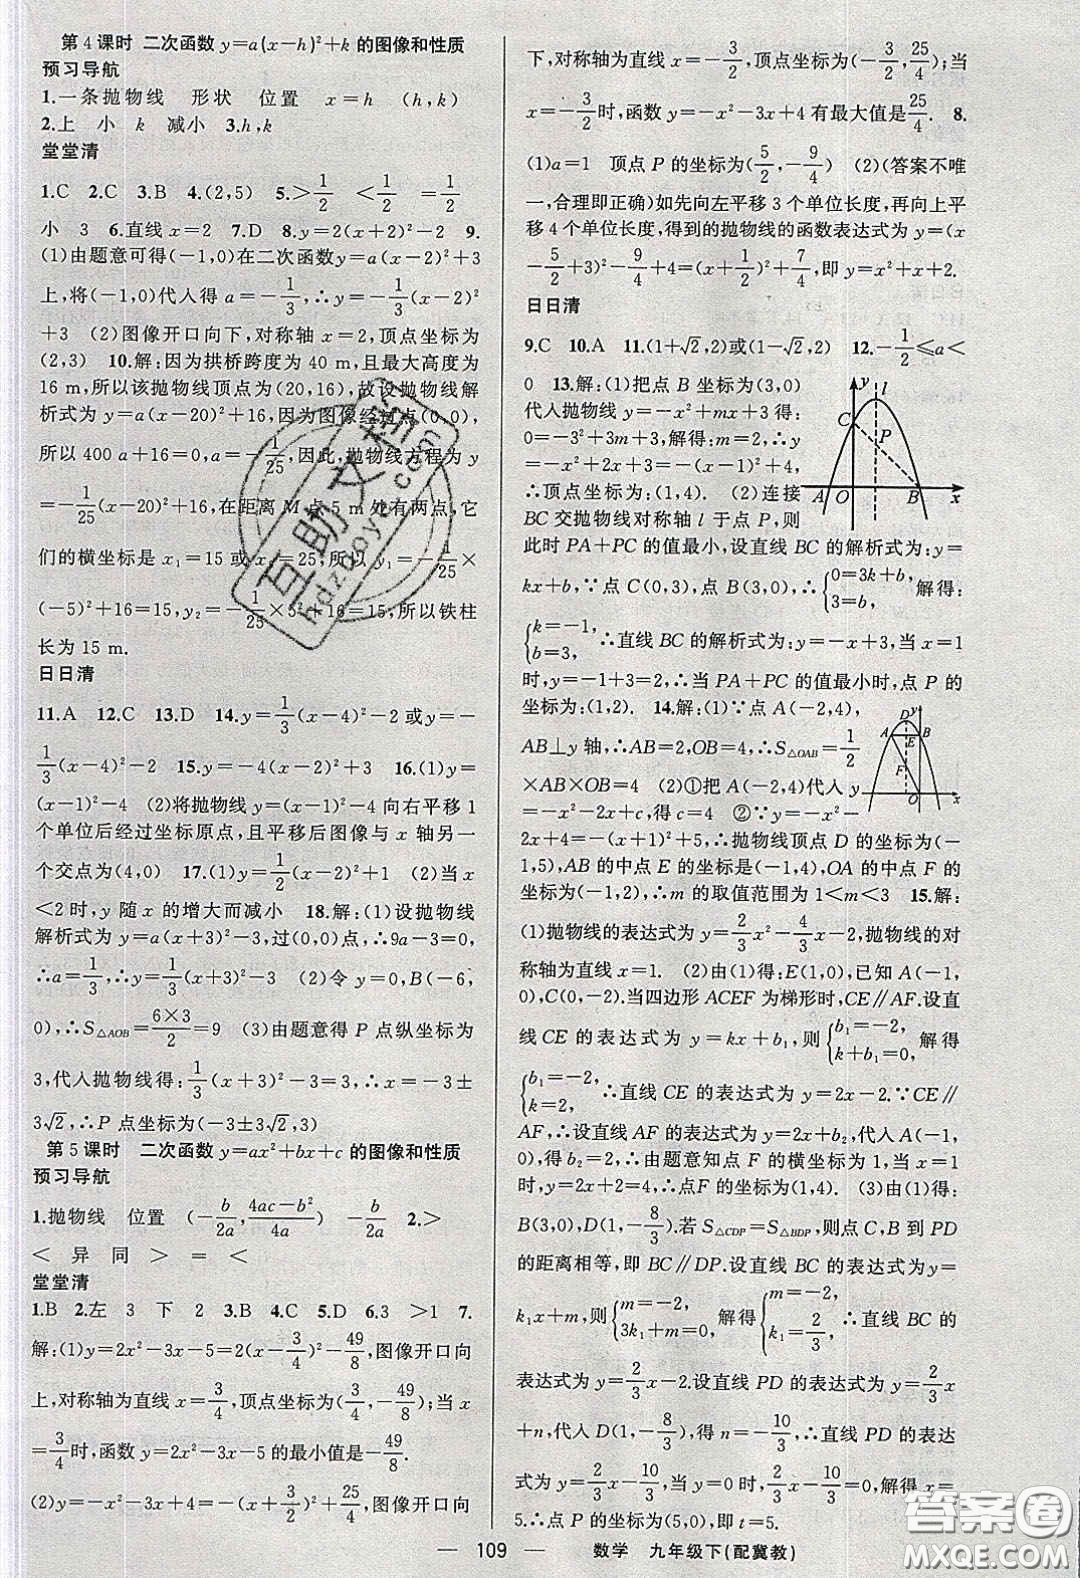 第 4 课时 二次函数 y=a(x-h)²+k 的图像和性质
预习导航
1.一条抛物线 形状 位置 x=h (h,k)
2.上 小 k 减小 3.h,k
堂堂清
1.C 2.C 3.B 4.(2,5) 5.>1/2 <1/2 =1/2
小 3 6.直线 x=2 7.D 8.y=2(x+2)²-2 9.
(1)由题意可得(-1,0)在二次函数y=a(x-2)²+3
上,将(-1,0)代入得 a=-1/3,∴y=-1/3(x-2)²
+3 (2)图像开口向下,对称轴 x=2,顶点坐标为
(2,3) 10.解:因为拱桥跨度为 40 m,且最大高度为
16 m,所以该抛物线顶点为(20,16),故设抛物线解
析式为 y=a(x-20)²+16,因为图像经过点(0,0),
所以 400 a+16=0,a=-1/25,因此,抛物线方程为 y
=-1/25(x-20)²+16,在距离 M 点 5 m 处有两点,它
们的横坐标是 x₁=15 或 x₂=25,所以 y₁=-1/25×
(-5)²+16=15,y₂=-1/25×5²+16=15,所以铁柱
长为 15 m.
日日清
11.A 12.C 13.D 14.y=1/3(x-4)²-2 或y=-
1/3(x-4)²-2 15.y=-4(x-2)²-3 16.(1)y=
(x-1)²-4 (2)将抛物线 y=(x-1)²-4 向右平移 1
个单位后经过坐标原点,且平移后图像与 x 轴另一
个交点为(4,0) 17.(1)y=1/2(x-2)²+1 (2)当 x
<2 时,y 随 x 的增大而减小 18.解:(1)设抛物线
解析式为 y=a(x+3)²-3,过(0,0)点,∴9a-3=0,
∴a=1/3,∴y=1/3(x+3)²-3 (2)令 y=0,B(-6,
0),∴S△AOB=6×3/2=9 (3)由题意得 P 点纵坐标为
3,代入抛物线得:1/3(x+3)²-3=3,∴x=-3±
3√2,∴P 点坐标为(-3±3√2,3)
第 5 课时 二次函数 y=ax²+bx+c 的图像和性质
预习导航
1.抛物线 位置 (-b/2a,4ac-b²/4a) -b/2a 2.>
< 异 同 > = <
堂堂清
1.B 2.左 3 下 2 3.B 4.C 5.D 6.3 >1 7.
解:(1)y=2x²-3x-5=2(x-3/4)²-49/8,图像开口向
上,对称轴为直线 x=3/4,顶点坐标为(3/4,-49/8);当 x
=3/4时,函数 y=2x²-3x-5 的最小值是-49/8.
(2)y=-x²-3x+4=-(x+3/2)²+25/4,图像开口向
下,对称轴为直线 x=-3/2,顶点坐标为(-3/2,25/4);当
x=-3/2时,函数 y=-x²-3x+4 有最大值是25/4. 8.
(1)a=1 顶点 P 的坐标为(5/2,-9/4) (2)(答案不唯
一,合理即正确)如先向左平移 3 个单位长度,再向上平
移 4 个单位长度,得到的抛物线的函数表达式为 y=(x
-5/2+3)²-9/4+4=(x+1/2)²+7/4,即 y=x²+x+2.
日日清
9.C 10.A 11.(1+√2,2)或(1-√2,2) 12.-1/2≤a<
0 13.解:(1)把点 B 坐标为(3,0)
代入抛物线 y=-x²+mx+3 得:
0=-3²+3m+3,解得:m=2,∴y
=-x²+2x+3=-(x-1)²+4,
∴顶点坐标为:(1,4). (2)连接
BC 交抛物线对称轴 l 于点 P,则
y l C P A O B x
此时 PA+PC 的值最小,设直线 BC 的解析式为:y=
kx+b,∵点 C(0,3),点 B(3,0),∴{0=3k+b, 3=b, 解得:
{k=-1, b=3, ∴直线 BC 的解析式为:y=-x+3,当 x=1
时,y=-1+3=2,∴当 PA+PC 的值最小时,点 P 的
坐标为:(1,2). 14.解:(1)∵点 A(-2,4),
AB⊥y 轴,∴AB=2,OB=4,∴S△OAB=1/2
×AB×OB=4 (2)①把 A(-2,4)代入 y
=-x²-2x+c,得 c=4 ②∵y=-x²-
D y A E B F O x
2x+4=-(x+1)²+5,∴抛物线顶点 D 的坐标为(-
1,5),AB 的中点 E 的坐标是(-1,4),OA 的中点 F 的
坐标为(-1,2),∴m 的取值范围为 1<m<3 15.解:
(1)抛物线的表达式为 y=2/3x²-4/3x-2,抛物线的对
称轴为直线 x=1. (2)由(1)得:E(1,0),已知 A(-1,
0),C(0,-2).当四边形 ACEF 为梯形时,CE∥AF.设
直线 CE 的表达式为 y=kx+b₁,则{b₁=-2, k+b₁=0, 解得
{b₁=-2, k=2, ∴直线 CE 的表达式为 y=2x-2.∵CE∥
AF,∴设直线 AF 的表达式为 y=2x+b₂,代入 A(-1,
0),得 b₂=2,∴由题意知点 F 的横坐标为 1,当 x=1 时,
y=2x+2=4,∴点F 的坐标为(1,4). (3)由(1)得
B(3,0),D(1,-8/3).若 S△CDP=S△BDP,则点 C,B 到 PD
的距离相等,即 BC∥DP.设直线 BC 的表达式为 y=
k₁x+m,则{m=-2, 3k₁+m=0, 解得{m=-2, k₁=2/3, ∴直线 BC 的
表达式为 y=2/3x-2.设直线 PD 的表达式为 y=2/3x
+n,代入 D(1,-8/3),得 n=-10/3,∴直线 PD 的表达
式为 y=2/3x-10/3,当 y=0 时,2/3x-10/3=0,解得 x=
5.∴点 P 的坐标为(5,0),即 t=5.
— 109 — 数学 九年级下(配冀教)
互助文档
hdzuoye.com
答案圈
MXQE.COM